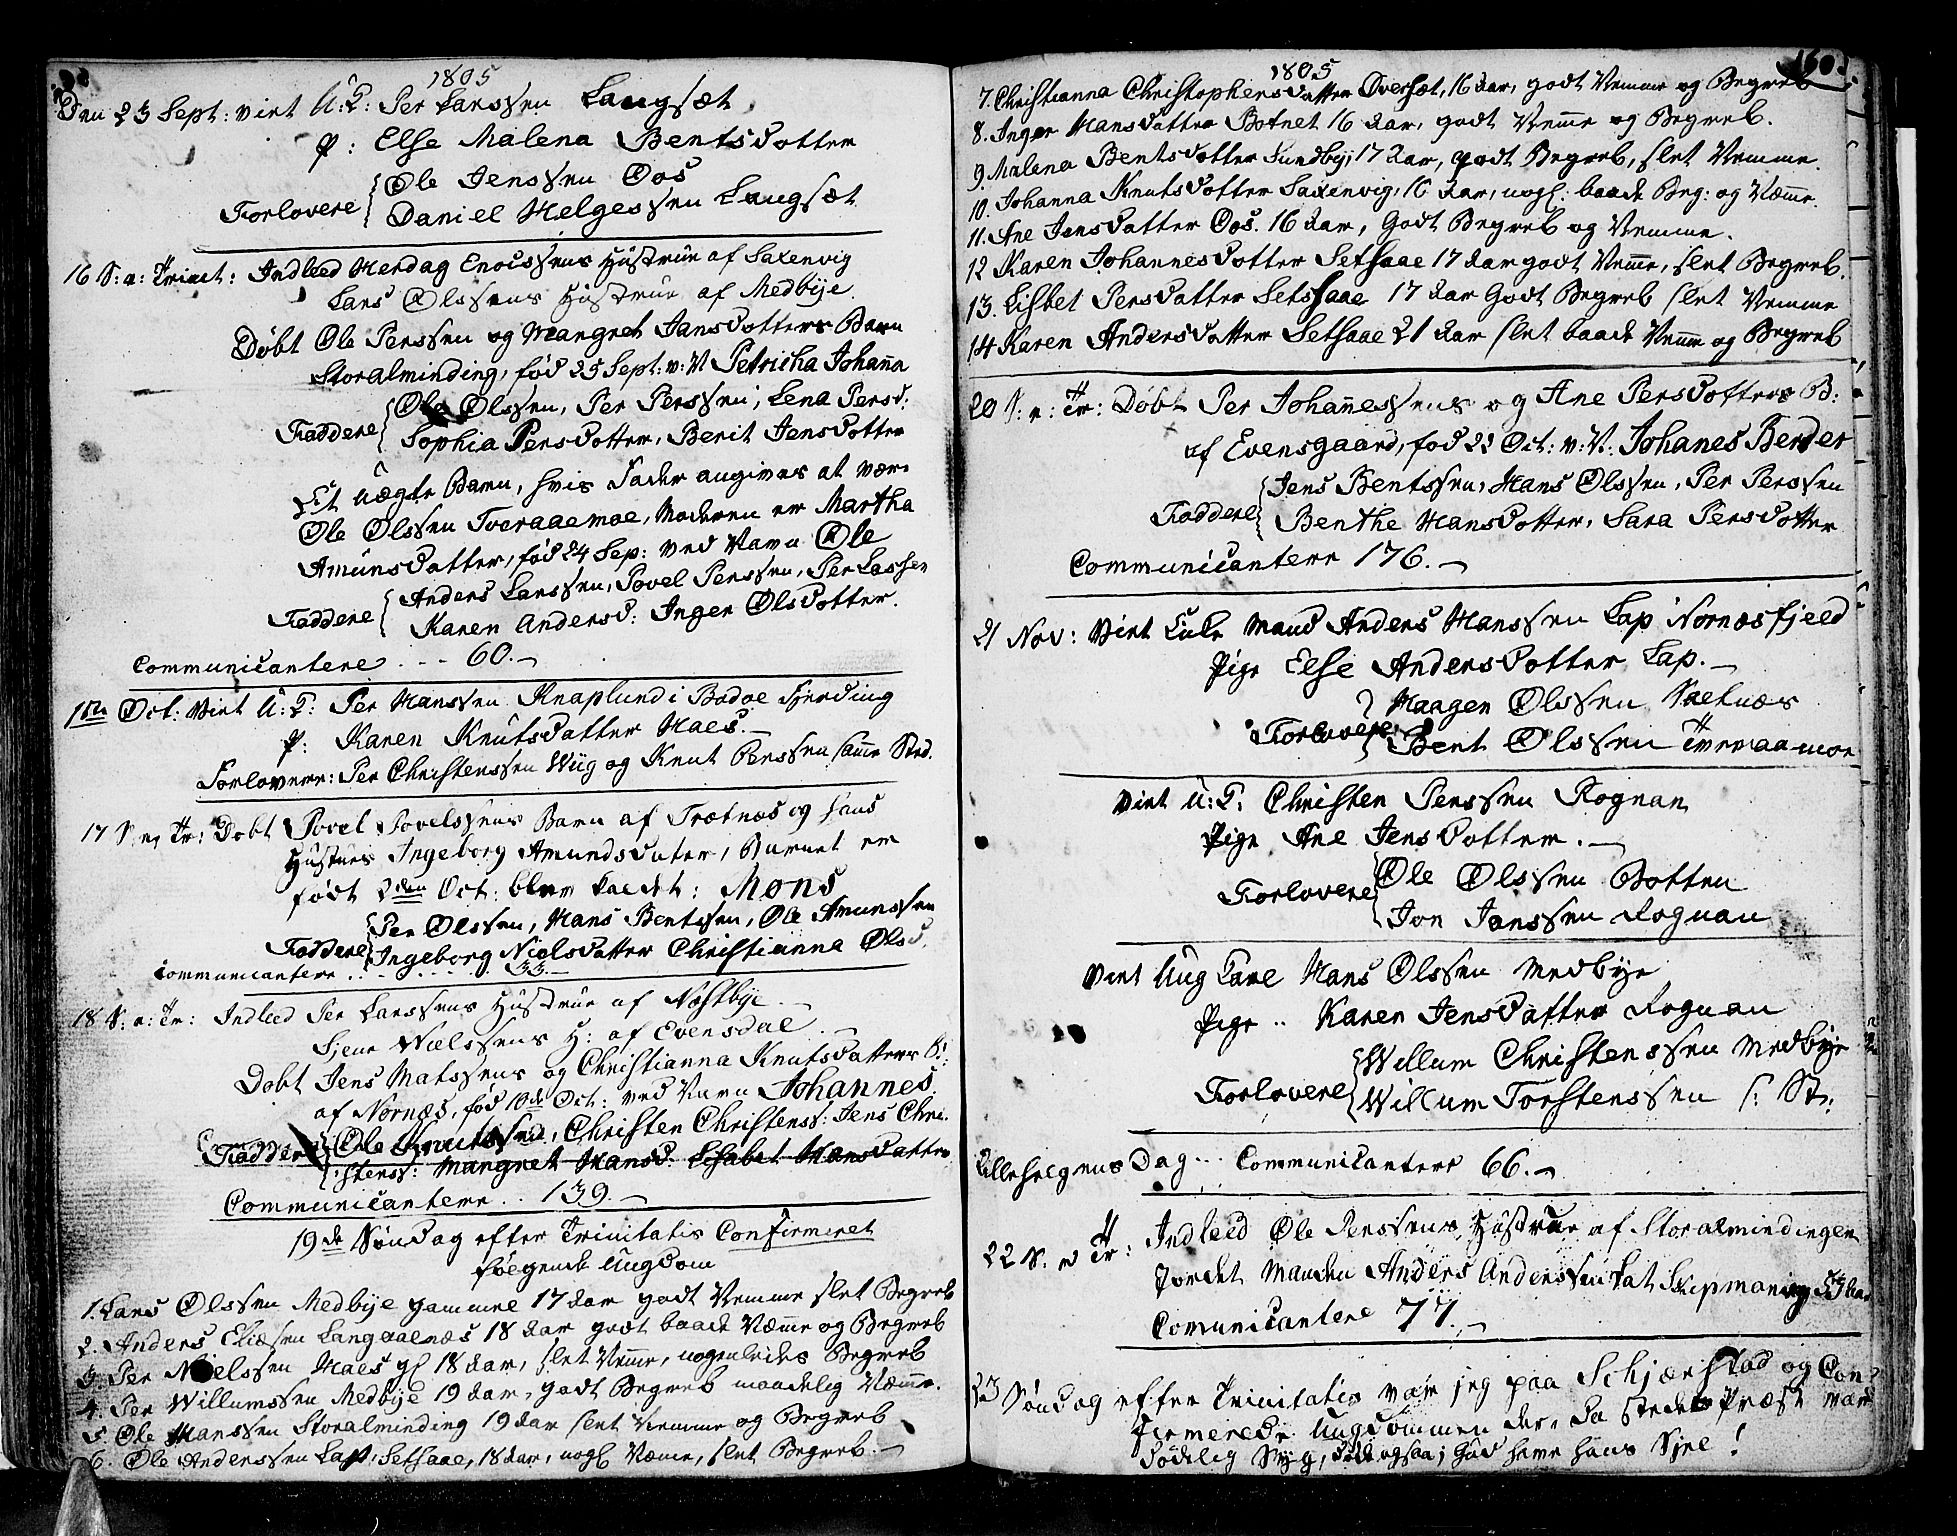 1805
Den 23 Sept: viet U: K: Per Larssen Langsæt
P: Else Malena Bentsdotter
Forlovere Ole Jenssen Oos
Daniel Helgessen Langsæt
16 S: a: Trinit: Indleed Herdag Enocssens Hustrue af Saxenvig
Lars Olssens Hustrue af Medbye
Døbt Ole Perssen og Mangret Jansdotters Barn
Storalminding, fød 25 Sept: v: N Petricha Johanna
Faddere Ole Olssen, Per Perssen, Lena Persd:
Sophia Persdotter, Berit Jensdotter
Et Uægte Barn, hvis Fader angives at være
Ole Olssen Tveraaemoe, Moderen er Martha
Amunsdatter, fød 24 Sep: ved Navn Ole
Faddere Anders Larssen, Povel Perssen, Per Lassen
Karen Andersd: Inger Olsdotter.
Communicantere . - - 60. -
1ste Oct: Viet U: K: Per Hanssen Knaplund i Bodoe Fjerding
P: Karen Knutsdatter Naes. -
Forlovere: Per Christenssen Wiig og Knut Perssen samme Sted.
17 S. n. Tr: Døbt Povel Povelssens Barn af Trætnæs og hans
Hustrues Ingeborg Amundsdater, Barnet er
født 2den Oct: blev kaldt: Mons
Faddere Per Olssen, Hans Bentssen, Ole Amunssen
Ingeborg Nielsdatter Christianna Olsd.
Communicantere . . . . . . . . 33. -
18 S: a: Tr: Indleed Per Larssens Hustrue af Næstbye. -
Sjene Nielssens H: af Evensdal . -
Døbt Jens Matssens og Christianna Knutsdatters B:
af Nornæs, fød 10de Oct: ved Navn Johannes
Faddere Ole Knutssen, Christen Christenss: Jens Chri-
stenss: Mangret Hansd. Lisabet Hansdatter
Communicantere . . 139. -
19de Søndag efter Trinitatis Confirmeret
følgende Ungdom
1. Lars Olssen Medbye gammel 17 aar godt Nemme slet Begreb
2. Anders Eliesen Langaanæs 18 aar godt baade Næmme og Begreb
3. Per Nielssen Naes gl 18 aar, slet Nemme, nogenledes Begreb
4. Per Willumssen Medbye 19 aar, godt Begreb maadelig Næmme.
5 Ole Hanssen Storalminding 19 aar slet Nemme og Begreb
6. Ole Anderssen Lap, Setsaae, 18 aar, nogl Næme, slet Begreb. -
1805
160.
7. Christianna Christophersdatter Oversæt, 16 aar, godt Nemme og Begreb
8. Inger Hansdatter Botnet 16 aar, godt Nemme og Begreb.
9. Malena Bentsdotter Sundby, 17 aar, godt Begreb, slet Nemme.
10. Johanna Knutsdotter Saxenvig, 16 aar, nogl: baade Beg: og Næmme.
11. Ane Jensdatter Oos. 16 aar, Godt Begreb og Nemme.
12 Karen Johannesdotter Setsaae 17 aar godt Nemme, slet Begreb.
13. Lisbet Persdatter Setsaae 17 aar Godt Begreb slet Nemme
14 Karen Andersdatter Setsaae 21 aar slet baade Nemme og Begreb
20 S: n: Tr: Døbt Per Johannessens og Ane Persdotters B:
af Evensgaard, fød 22 Oct: v: N. Johanes Berder
Faddere Jens Bentssen, Hans Olssen, Per Perssen
Benthe Hansdotter, Sara Persdotter
Communicantere 176. -
21 Nov: Viet Enke Mand Anders Hanssen Lap Nornæsfjeld
Pige Else Andersdotter Lap. -
Forlovere Haagen Olssen Saltnæs
Bent Olssen Tveraamoe
Viet U: K: Christen Perssen Rognan
Pige Ane Jensdotter. -
Forlovere Ole Olssen Botten
Jon Janssen Rognan
Viet Ung Karl Hans Olssen Medbye
Pige .. Karen Jensdatter Rognan
Forlovere Willum Christenssen Medbye
Willum Torstenssen s: St:
Allehelgens Dag ... Communicantere 66. -
22 S. n Tr: Indleed Ole Perssens Hustrue af Storalmindingen
Jordet Manden Anders Anderssen
Comunicantere 77. -
23 Søndag efter Trinitatis var jeg paa Schjærstad og Con-
firmerede Ungdommen der, da Stedets Præst var
dødelig Syg, døde ogsaa; Gud have hans Sjel!